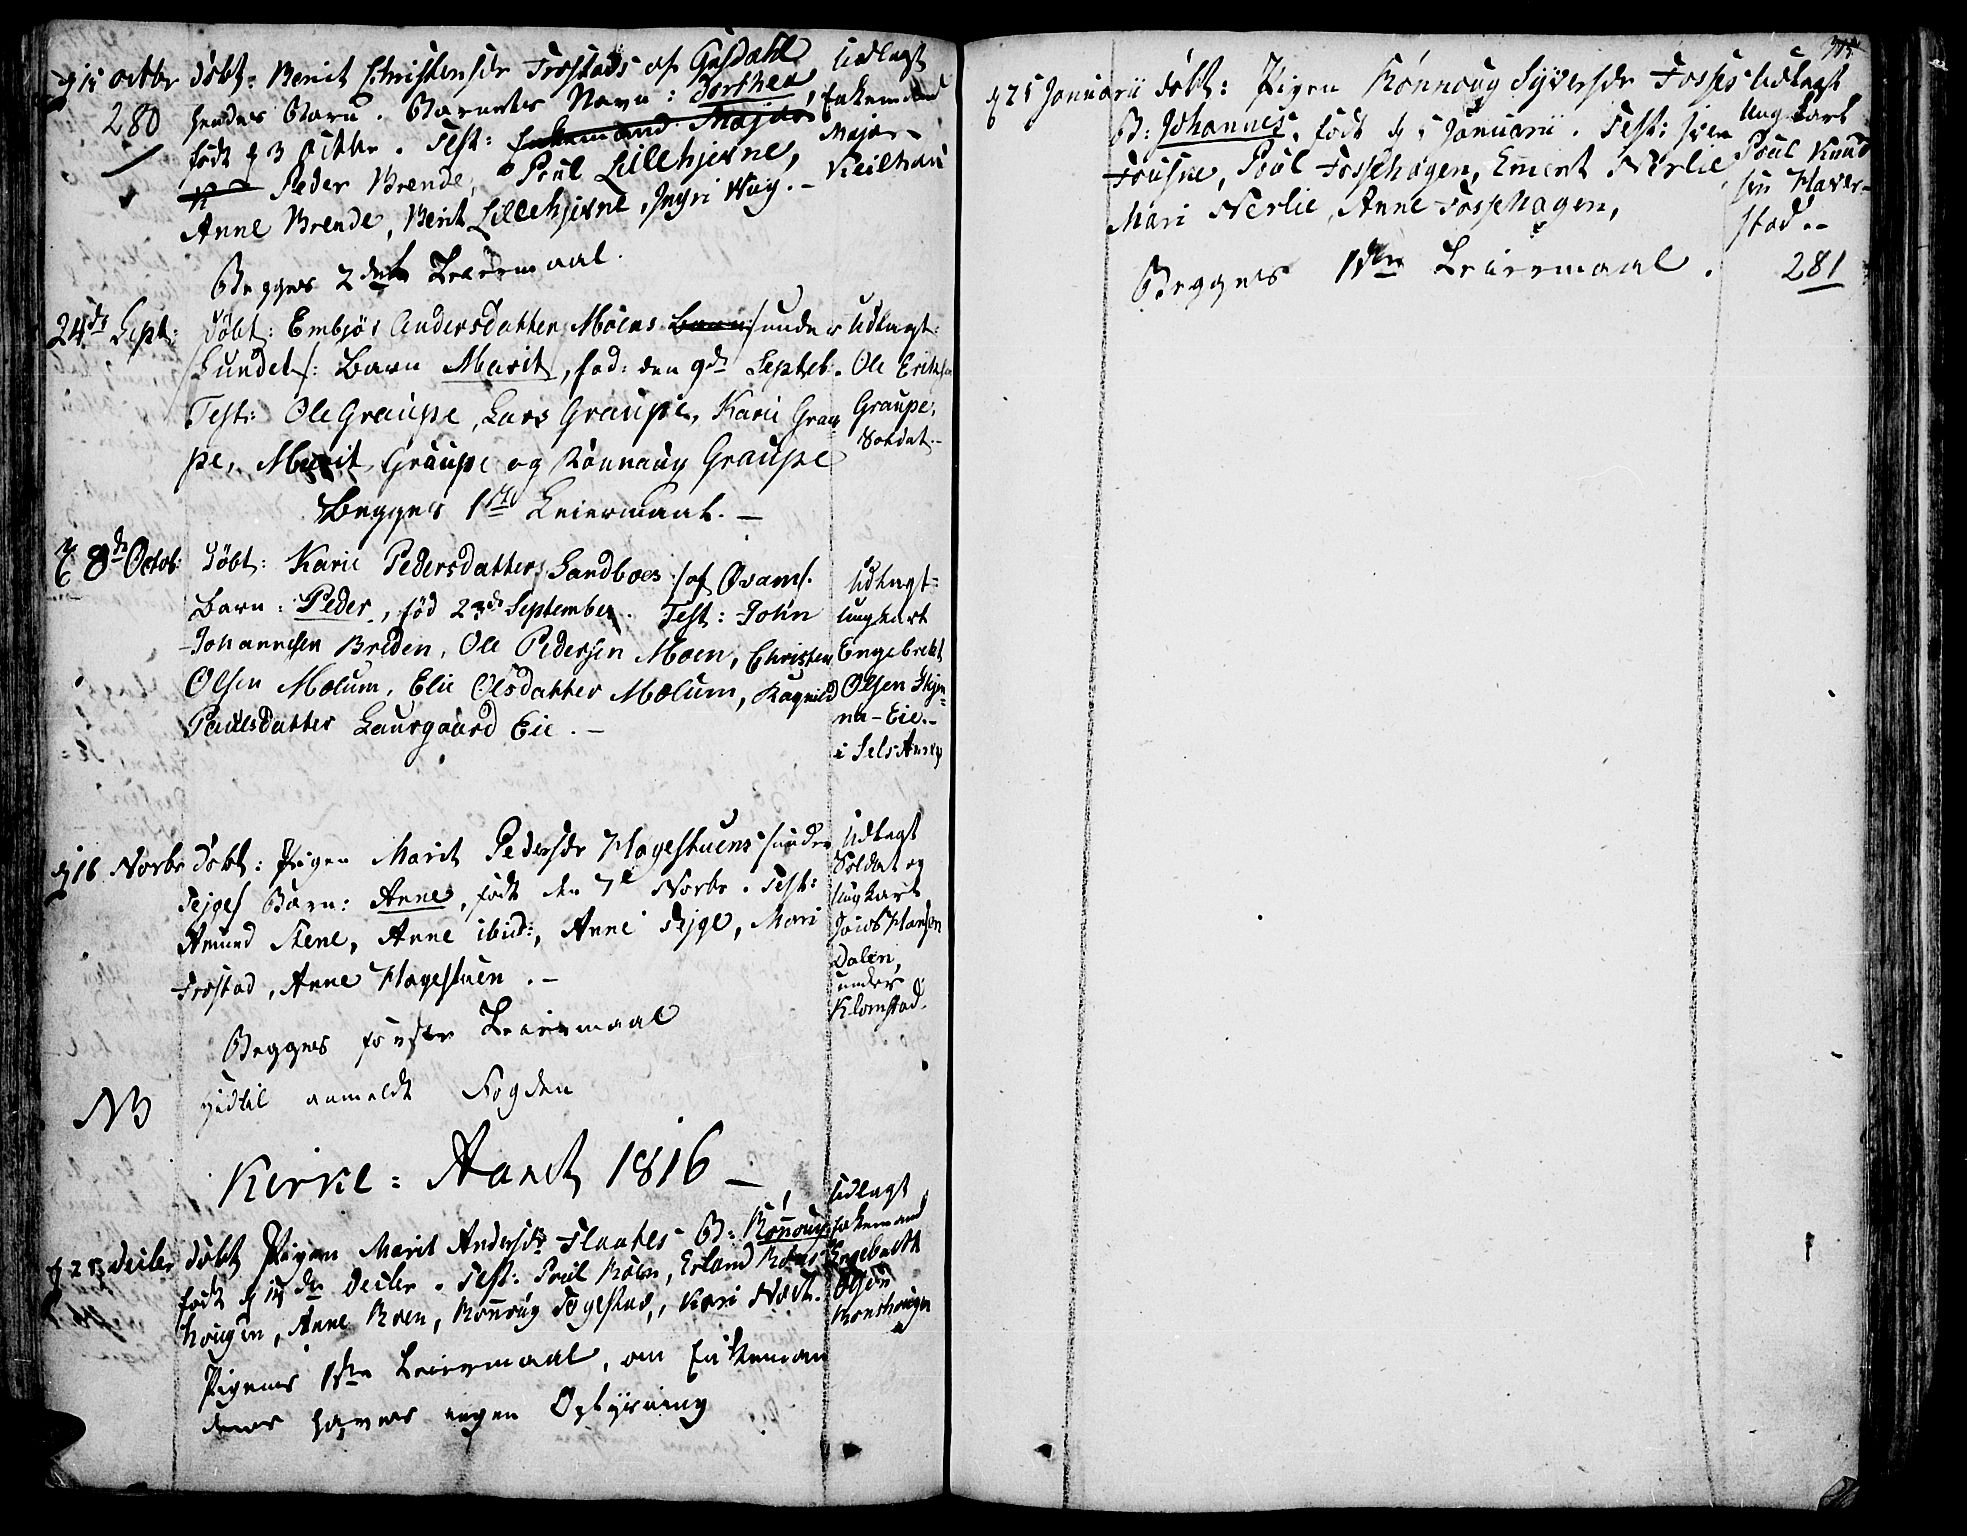 d 15 octbr døbt: Berit Christensdr Frostads af Gusdahl
280 hendes Barn. Barnets Navn: Dorthea
født d 3 octbr. Test: Enkemand Major
Peder Brende, Poul Lillehjerne,
Anne Brende, Berit Lillehjerne, Ingri Wiig. –
Begges 2det Leiermaal.
Udlagt
Enkemand
Major
Keilhau
24de Sept: Døbt: Embjør Andersdatter Moens Barn /: under
Sundet :/ Barn Marit, fød: den 9de Septeb.
Test: Ole Graupe, Lars Graupe, Karie Grau-
pe, Marit Graupe og Rønnaug Graupe
Begges 1ste Leiermaal. –
Udlagt:
Ole Eriksen
Graupe,
Soldat. –
d 8de Octob: Døbt: Karie Pedersdatters Sandboes /: af Qvam :/
Barn: Peder, fød 23de September. Test: John
Johannesen Breden, Ole Pedersen Moen, Christen
Olsen Mælum, Elie Olsdatter Mælum, Ragnild
Paulsdatter Laurgaard Eie. –
Udlagt:
Ungkarl
Engebrekt
Olsen Skjen-
na-Eie. –
i Sels Annex
d 16 Novbr døbt: Pigen Marit Pedersdr Hagestuens under
Tejges Barn: Anne, født den 7de Novbr. Test:
Amund Stene, Anne ibid:, Anne Tejge, Mari
Frostad, Anne Hagestuen. –
Begges første Leiermaal
Udlagt
Soldat og
Ungkarl
Jacob Hansen
Dalen,
under
Klomstad.
NB hidtil anmeldt Fogden
Kirke = Aaret 1816 –
d 25 Decbr døbt Pigen Marit Andersdr Flaates B: Rønnoug
født d 14de Decbr. Test: Poul Roen, Erland Rons-
hougen, Anne Roen, Rønnoug Togestad, Kari
Pigens 1ste Leiermaal, om Enkeman
dens haves ingen Oplysning
Udlagt
Enkemand
Engebrecht
Olsen
Ronshougen
315
d 25 Januarii døbt: Pigen Rønnoug Syversdr Fosses
B: Johannes, født d 5 Januarii. Test: Iver
Fousne, Poul Fossehagen, Emert Nerlie
Mari Nerlie, Anne Fossehagen,
Begges 1ste Leiermaal.
Udlagt
Ungkarl
Poul Knud
sen Haver-
stad. –
281